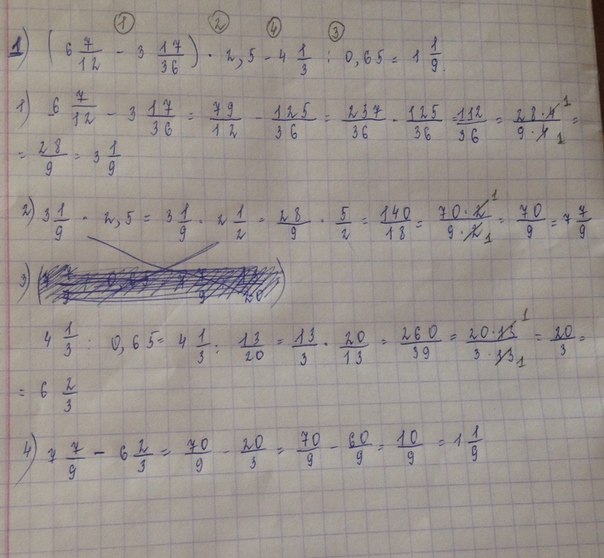 ① ② ④ ③
1) (6 7/12 - 3 17/36) · 2,5 - 4 1/3 : 0,65 = 1 1/9.
1) 6 7/12 - 3 17/36 = 79/12 - 125/36 = 237/36 - 125/36 = 112/36 = 28·4 1/9·4 1 =
= 28/9 = 3 1/9
2) 3 1/9 · 2,5 = 3 1/9 · 2 1/2 = 28/9 · 5/2 = 140/18 = 70·2 1/9·2 1 = 70/9 = 7 7/9
3)
4 1/3 : 0,65 = 4 1/3 : 13/20 = 13/3 · 20/13 = 260/39 = 20·13 1/3·13 1 = 20/3 =
= 6 2/3
4) 7 7/9 - 6 2/3 = 70/9 - 20/3 = 70/9 - 60/9 = 10/9 = 1 1/9